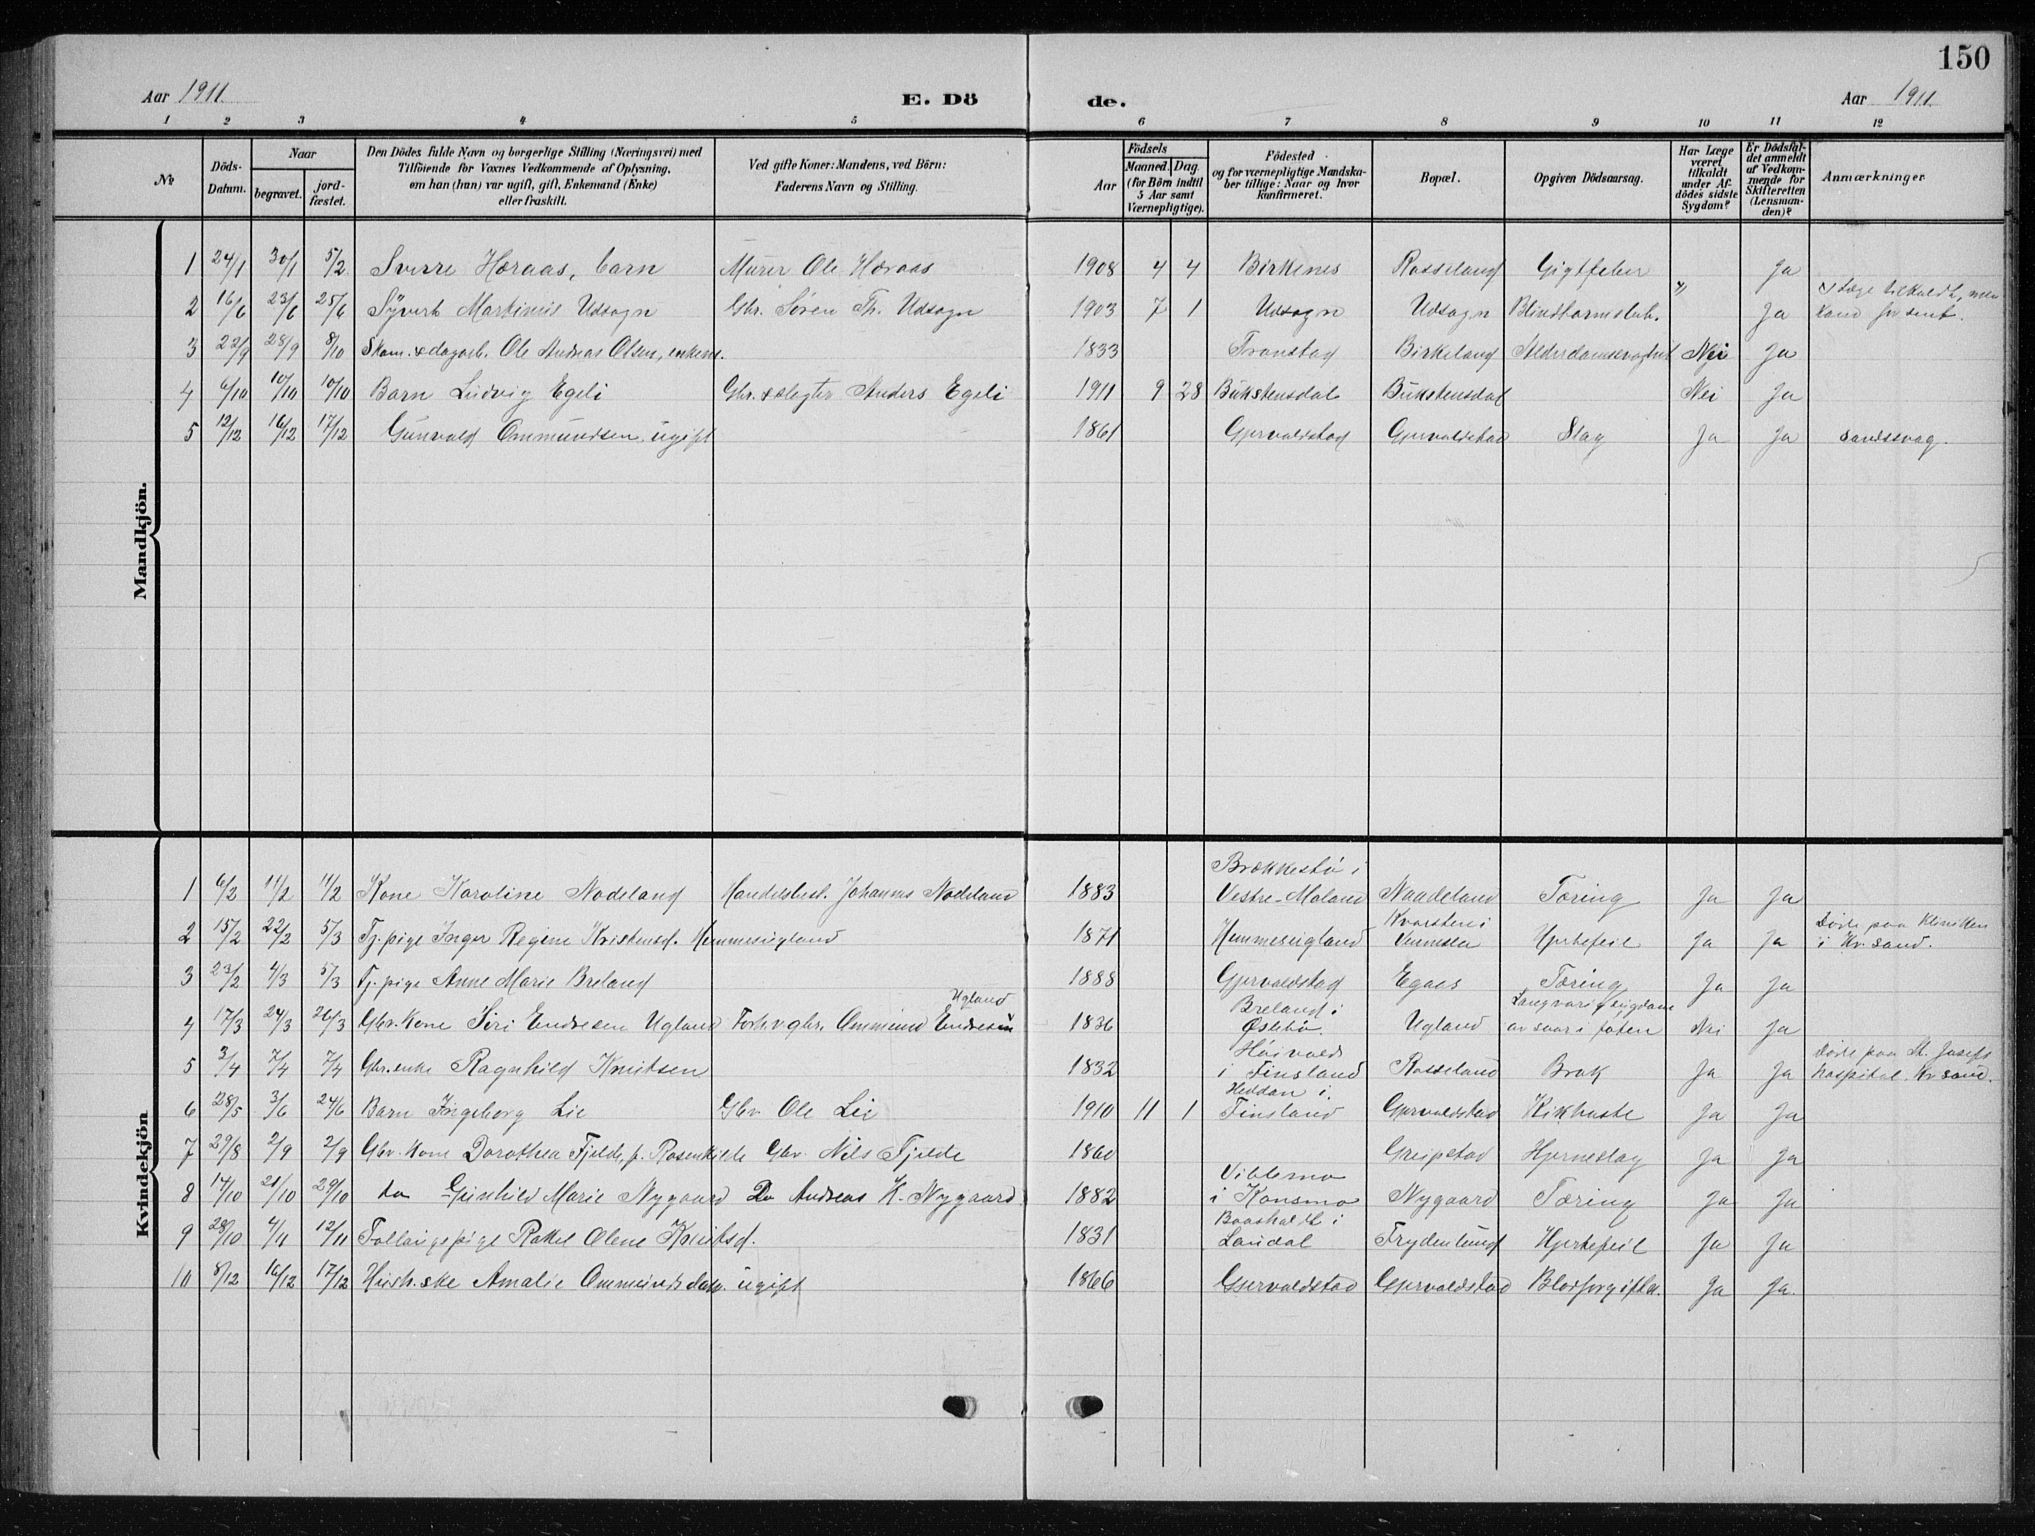 150
Aar 1911. E. Dö de. Aar 1911.
1 2 3 4 5 6 7 8 9 10 11 12
№
Döds-Datum.
Naar
begravet.
jord-fæstet.
Den Dödes fulde Navn og borgerlige Stilling (Næringsvei) med
Tilföiende för Voxnes Vedkommende af Oplysning,
om han (hun) var ugift, gift, Enkemand (Enke)
eller fraskilt.
Ved gifte Koner: Mandens, ved Börn:
Faderens Navn og Stilling.
Födsels
Aar
Maaned. Dag.
(for Börn indtil
5 Aar samt
Værnepligtige).
Födested
og for værnepligtige Mandska-
ber tillige: Naar og hvor
konfirmeret.
Bopæl.
Opgiven Dödsaarsag.
Har Læge
været
tilkaldt
under Af-
dödes sidste
Sygdom?
Er Dödsfal-
det anmeldt
af Vedkom-
mende for
Skifteretten
(Lensman-
den)?
Anmærkninger
Mandkjön.
1 24/1 30/1 5/2 Sverre Hæraas, barn Murer Ole Hæraas 1908 4 4 Birkenes Rosseland Gigtfeber " Ja
2 16/6 23/6 25/6 Syvert Martinius Udsogn Gbr. Søren Th. Udsogn 1903 7 1 Udsogn Udsogn Blindtarmsbet. " Ja Læge tilkaldt, men
kom for sent.
3 22/9 28/9 8/10 Skom. & dagarb. Ole Andreas Olsen, enkem. 1833 Tronstad Birkeland Alderdomssvaghet Nei Ja
4 6/10 10/10 10/10 Barn Ludvig Egeli Gbr. & slagter Anders Egeli 1911 9 28 Bukstensdal Bukstensdal Nei Ja
5 12/12 16/12 17/12 Gunvald Ommundsen, ugift 1861 Gjervoldstad Gjervoldstad Slag Ja Ja aandssvag.
Kvindekjön
1 6/2 11/2 11/2 Kone Karoline Nodeland Handelsbest. Johannes Nodeland 1883 Brækkestø i
Vestre-Moland Naadeland Tæring Ja Ja
2 15/2 22/2 5/3 Tj.pige Inger Regine Kristensd. Hemmesugland 1871 Hemmesugland Kvarstein i
Vennesla Hjertefeil Ja Ja Døde paa kliniken
i Kr.sand.
3 23/2 4/3 5/3 Tj.pige Anne Marie Breland 1888 Gjervoldstad Egaas Tæring Ja Ja
4 17/3 24/3 26/3 Gbr.kone Siri Endresen Ugland Forh.v.gbr. Ommund Endresen Ugland 1836 Breland i
Øslebø Ugland Langvarig sygdom
av saar i foten Nei Ja
5 3/4 7/4 7/4 Gbr.enke Ragnhild Knutsen 1832 Høivolds
i Finsland Rosseland Brok Ja Ja Døde paa St. Josefs
hospital, Kr.sand.
6 28/5 3/6 24/6 Barn Ingeborg Lie Gbr Ole Lie 1910 11 1 Heddan i
Finsland Gjervoldstad Kikhoste Ja Ja
7 29/8 2/9 2/9 Gbr.kone Dorothea Fjelde, f. Rosenkilde Gbr. Nils Fjelde 1860 Greipstad Hjerneslag Ja Ja
8 17/10 21/10 29/10 do Gunhild Marie Nygaard Do Andreas K. Nygaard 1882 Viblemo
i Konsmo Nygaard Tæring Ja Ja
9 28/10 4/11 12/11 Rakel Olene Knutsd. 1831
Laudal Frydenlund Hjertefeil Ja Ja
10 8/12 16/12 17/12 Hush.ske Amalie Ommundsdatr. ugift 1866 Gjervoldstad Gjervoldstad Blodforgiftn. Ja Ja.